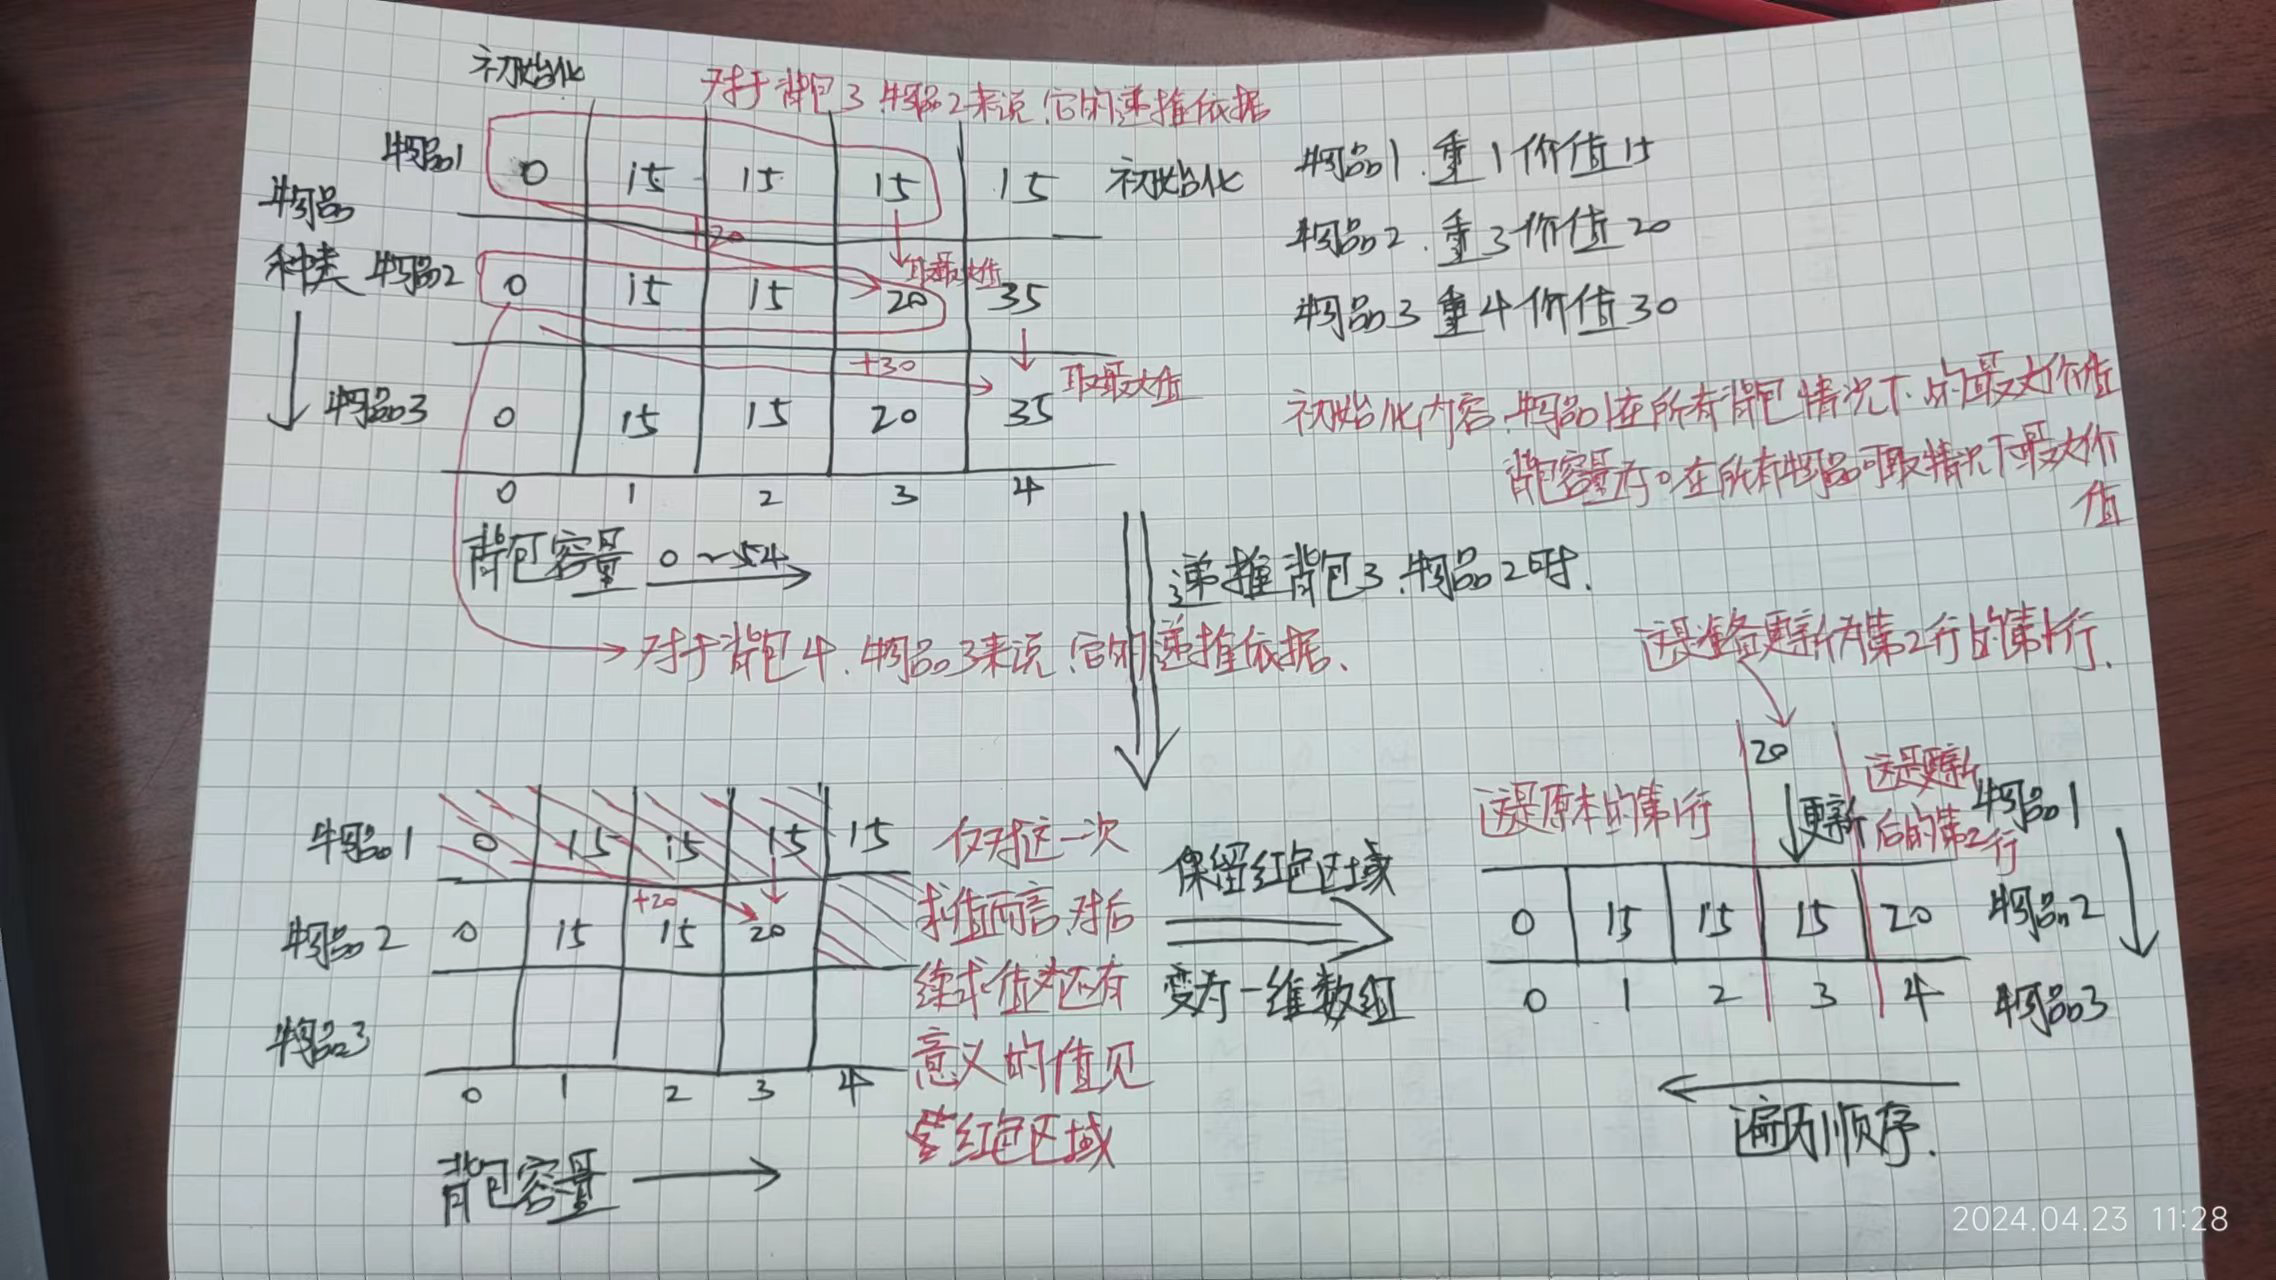 初始化
对于背包3 物品2来说,它的递推依据
物品1 0 15 15 15 15 初始化
+20
取最大值
物品
种类
物品2 0 15 15 20 35
+30
取最大值
物品3 0 15 15 20 35
0 1 2 3 4
背包容量 0~54
物品1.重1价值15
物品2.重3价值20
物品3 重4价值30
初始化内容.物品1在所有背包情况下的最大价值
背包容量为0在所有物品可取情况下最大价
值
对于背包4.物品3来说,它的递推依据、
递推背包3.物品2时.
物品1 0 15 15 15 15
+20
物品2 0 15 15 20
物品3
0 1 2 3 4
背包容量
仅对这一次
求值而言,对后
续求值还有
意义的值见
红色区域
保留红色区域
变为一维数组
这是准备更新为第2行的第1行.
20
这是原本的第1行
更新
这是更新
后的第2行
物品1
0 15 15 15 20
物品2
0 1 2 3 4
物品3
遍历顺序.
2024.04.23 11:28